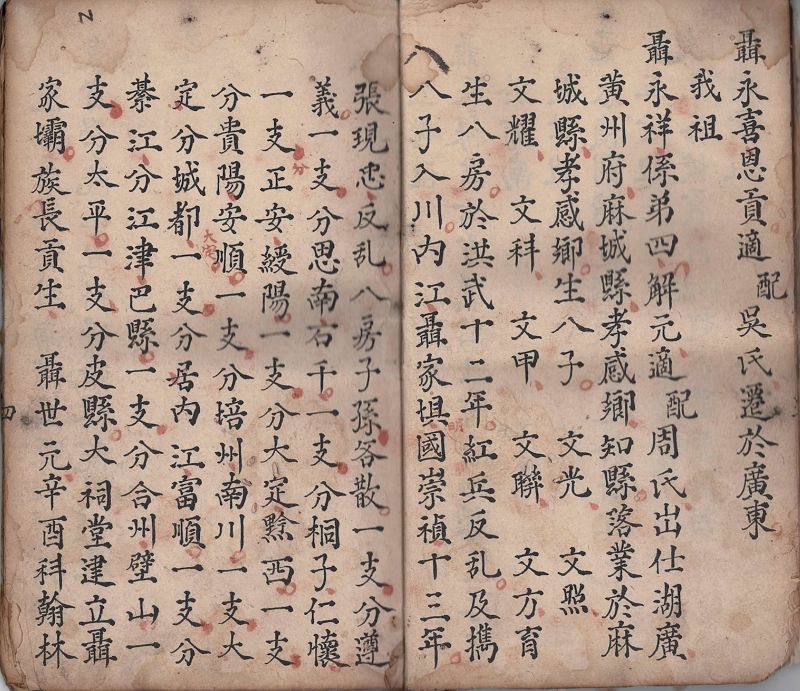 聶永喜恩貢適配吳氏遷於廣東
我祖
聶永祥係弟四解元適配周氏出仕湖廣
黃州府麻城縣孝感鄉知縣落業於麻
城縣孝感鄉生八子 文光 文照
文耀 文科 文甲 文聯 文方育
生八房於洪武十二年紅兵反乱及擕
八子入川內江聶家埧國崇禎十三年
張現忠反乱八房子孫各散一支分遵
義一支分思南石千一支分桐子仁懷
一支正安綏陽一支分大定黔西一支
分
分貴陽安順一支分培州南川一支大
大定
定分城都一支分居內江富順一支分
綦江分江津巴縣一支分合州壁山一
支分太平一支分皮縣大祠堂建立聶
家壩族長貢生 聶世元辛酉科翰林
四